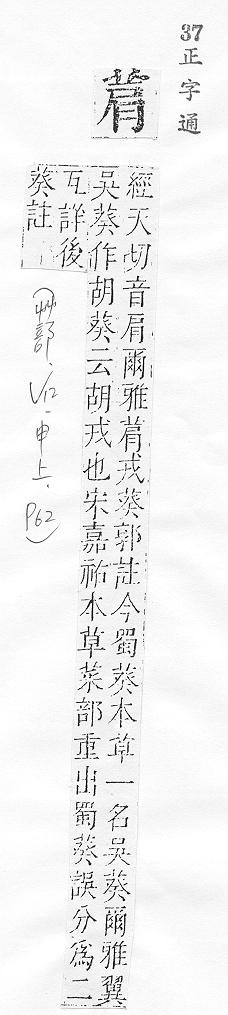 37
正字通
菺
經天切音肩爾雅菺戎葵郭註今蜀葵本草一名吳葵爾雅翼
吳葵作胡葵云胡戎也宋嘉祐本草菜部重出蜀葵誤分為二
互詳後
葵註
(艸部．V12．申上．P62)